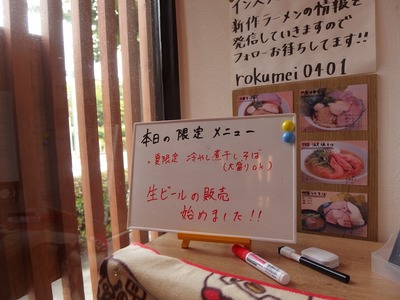 インスタ
新作ラーメンの情報を
発信していきますので
フォローお待ちしてます!!
rokumei 0401
本日の限定メニュー
・夏限定 冷やし煮干しそば
(大盛りok)
生ビールの販売
始めました!!